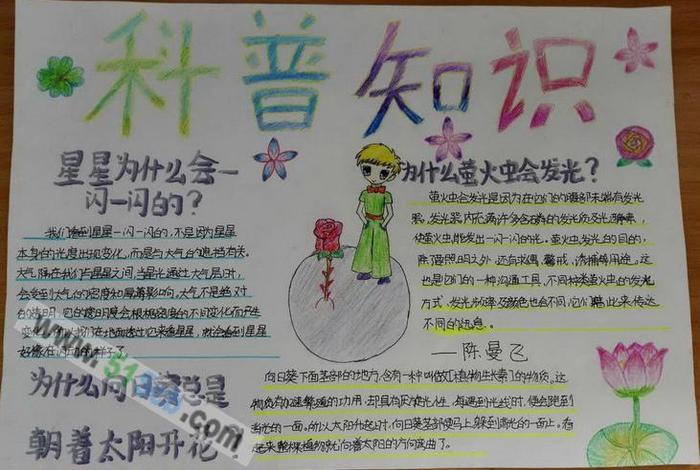 科普知识
星星为什么会一
闪一闪的?
我们看到星星一闪一闪的,不是因为星星
本身的光度出现变化,而是与大气的遮挡有关。
大气隔在我们与星星之间,当星光通过大气层时,
会受到大气的密度和厚薄影响。大气不是绝对
的透明,它的透明度会根据密度的不同变化而产生
我们在地面透过它来看星星,就会看到星星
好像在闪动的样子了
为什么萤火虫会发光?
萤火虫会发光是因为在它们的腹部末端有发光
器,发光器内充满许多含磷的发光质及发光酵素,
使萤火虫能发出一闪一闪的光。萤火虫发光的目的,
除了照明之外,还有求偶、警戒、诱捕等用途。这
也是它们的一种沟通工具,不同种类萤火虫的发光
方式、发光频率及颜色也会不同,它们藉此来传达
不同的讯息。
—陈曼飞
为什么向日葵总是
朝着太阳开花
向日葵下面茎部的地方含有一种叫做[植物生长素]的物质。这
物质有加速繁殖的功用,却具有厌光性,每遇到光线时,便会跑到
背光的一面。所以太阳升起时,向日葵茎部便马上躲到背光的一面上。看
起来整棵植物就向着太阳的方向弯曲了。
www.51
.com